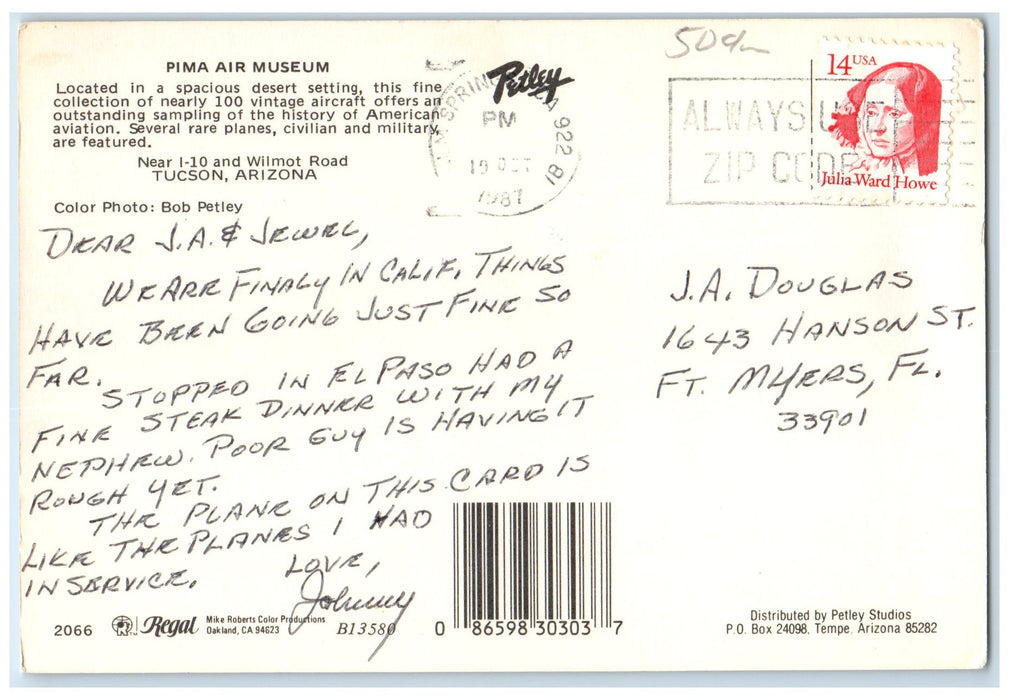 PIMA AIR MUSEUM
Located in a spacious desert setting, this fine
collection of nearly 100 vintage aircraft offers an
outstanding sampling of the history of American
aviation. Several rare planes, civilian and military,
are featured.
Near I-10 and Wilmot Road
TUCSON, ARIZONA
Color Photo: Bob Petley
Petley
SPRING CA 922 81
PM
19 OCT
1987
ALWAYS USE
ZIP CODE
14 USA
Julia Ward Howe
DEAR J.A. & JEWEL,
WE ARE FINALY IN CALIF. THINGS
HAVE BEEN GOING JUST FINE SO
FAR.
STOPPED IN EL PASO HAD A
FINE STEAK DINNER WITH MY
NEPHEW. POOR GUY IS HAVING IT
ROUGH YET.
THE PLANE ON THIS CARD IS
LIKE THE PLANES I HAD
IN SERVICE.
LOVE,
Johnny
J.A. DOUGLAS
1643 HANSON ST.
FT. MYERS, FL.
33901
2066
Regal
Mike Roberts Color Productions
Oakland, CA 94623
B13580
0 86598 30303 7
Distributed by Petley Studios
P.O. Box 24098, Tempe, Arizona 85282